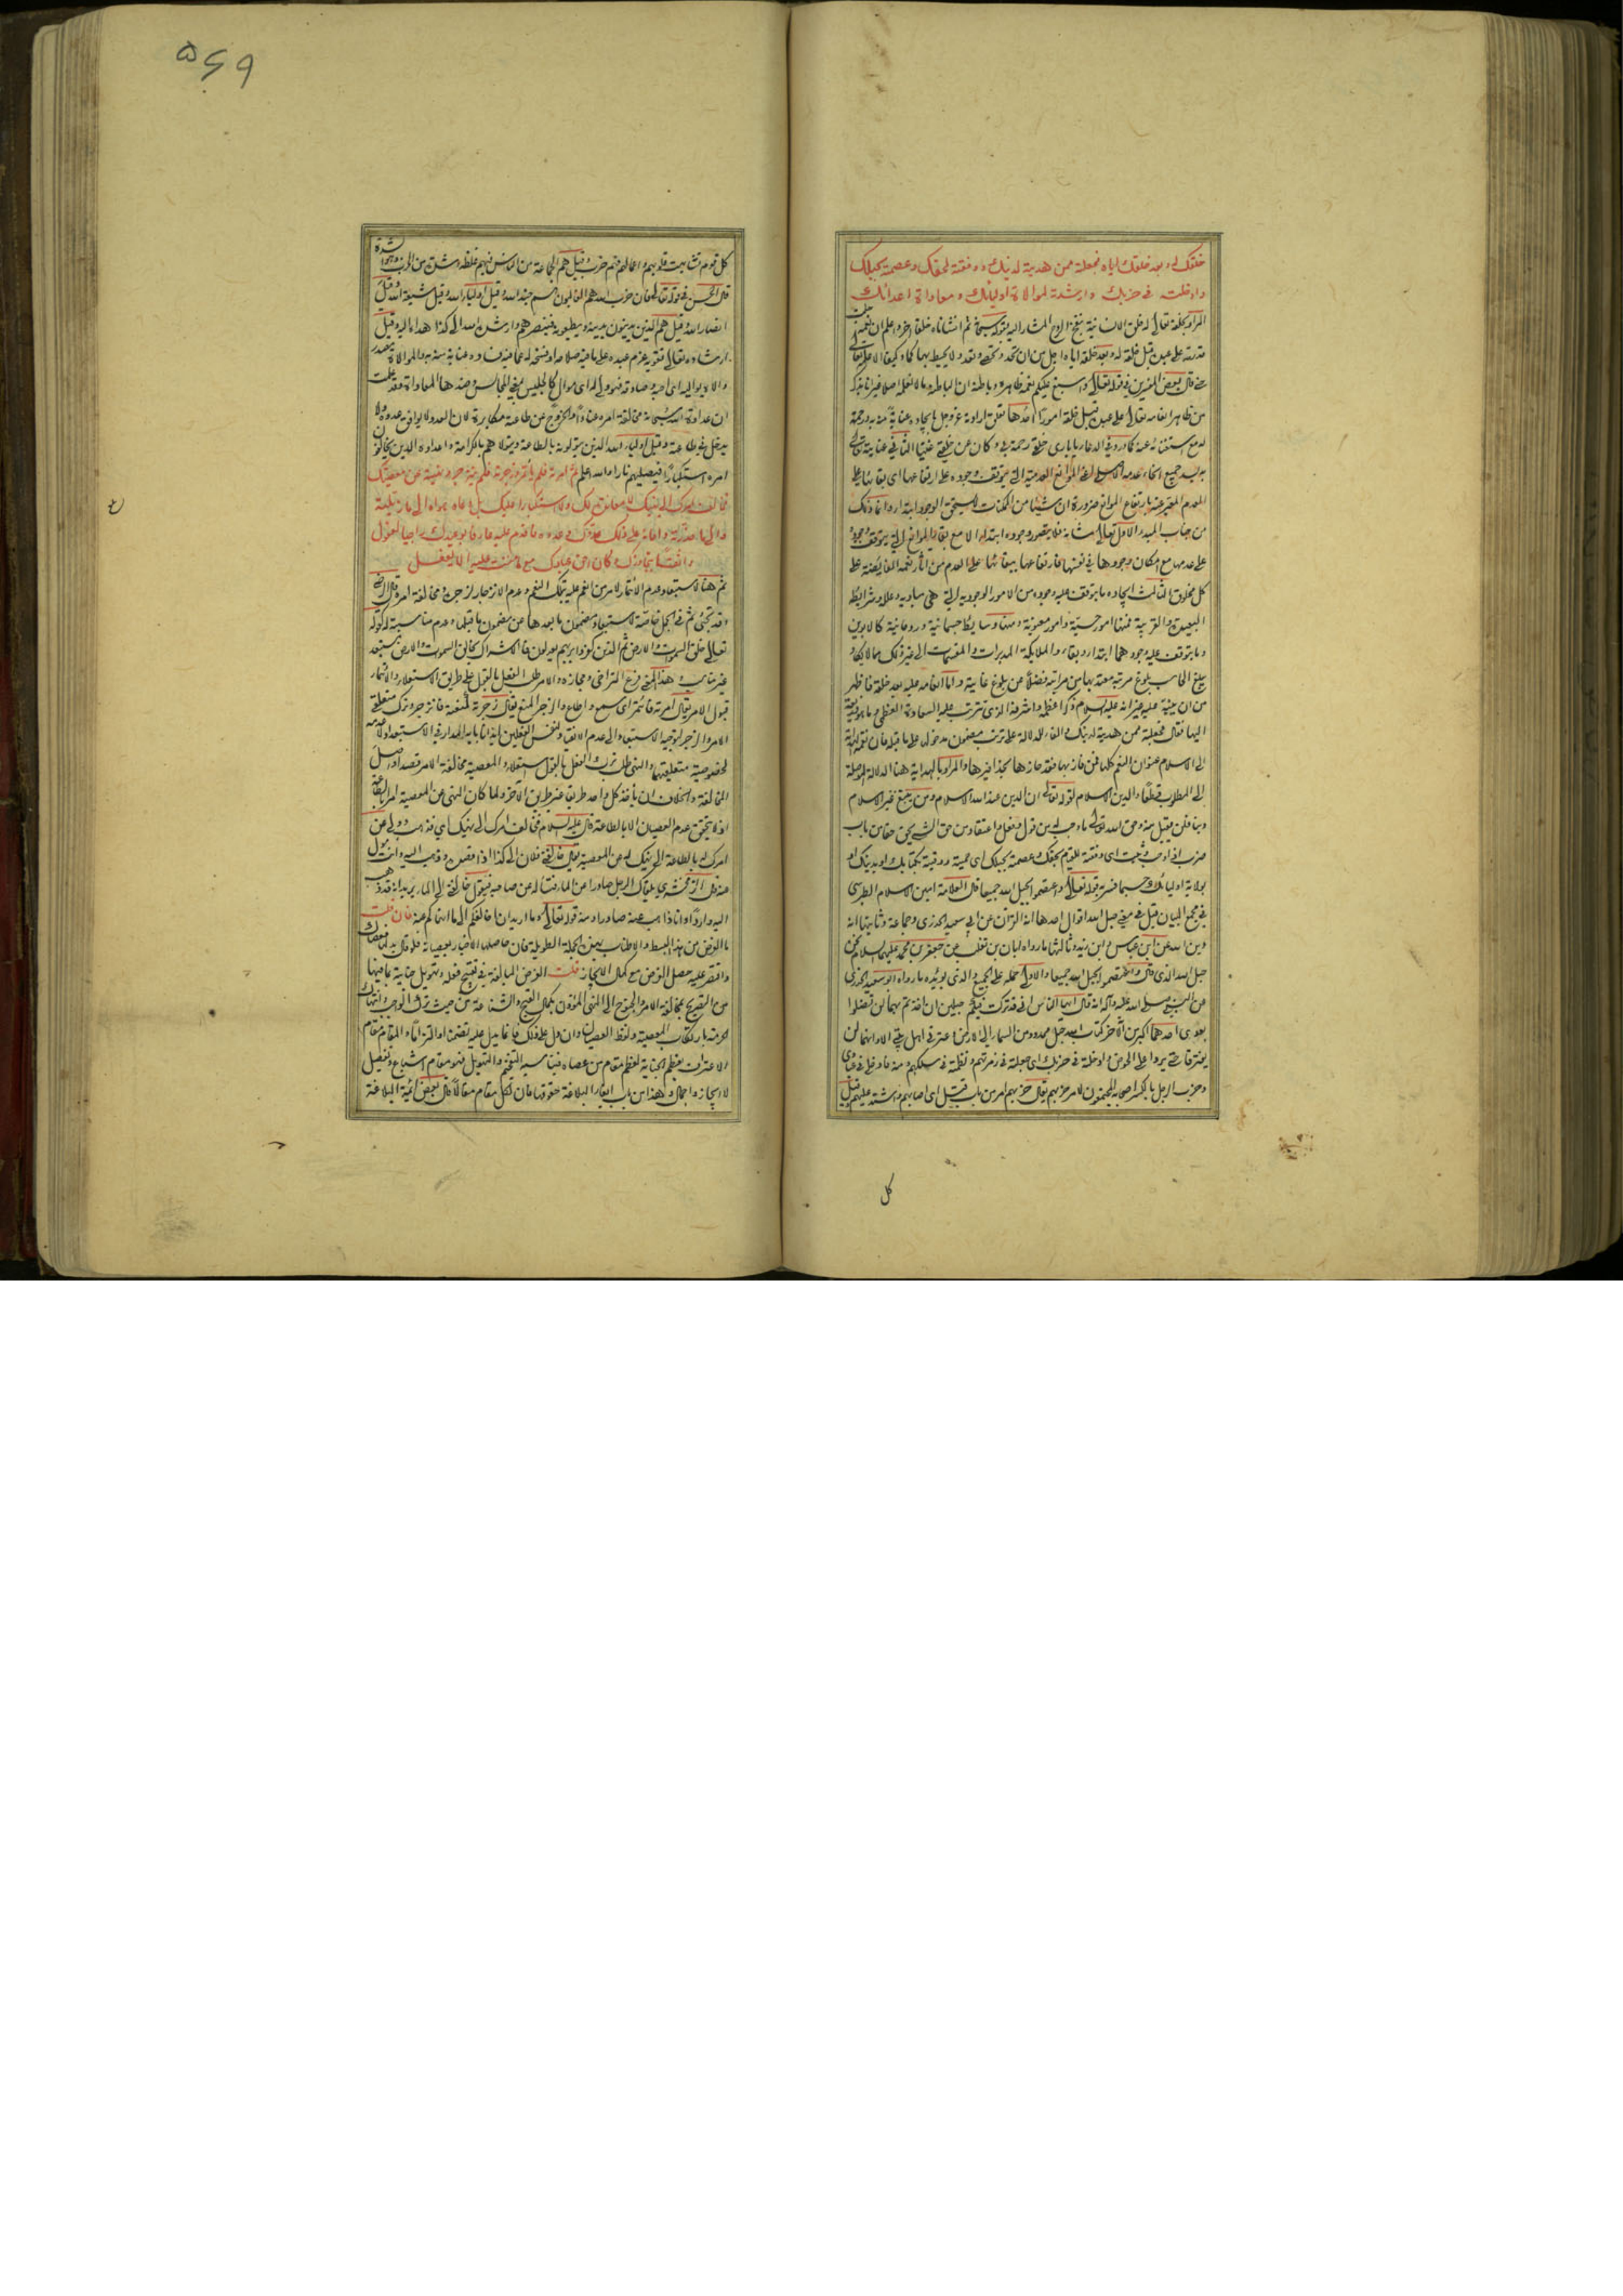 خلقك له وبعد خلقك اياه فجعلته ممن هديته لدينك ووفقته لحقك وعصمته بحبلك
وادخلته في حزبك وارشدته لموالاة اوليائك ومعاداة اعدائك
المراد بخلقه تعالى له خلق الانسانية بنفخ الروح المشار اليه بقوله سبحانه ثم انشأناه خلقا آخر واعلم ان نعمة
على عبده قبل خلقه له وبعد خلقه اياه اجل من ان تحد وتحصى وتعد ولا يحيط بها كما وكيفا الا علمه تعالى
قال بعض المفسرين في قوله تعالى واسبغ عليكم نعمه ظاهرة وباطنة ان الباطنة ما لا نعلمه اصلا
من ظاهر انعامه تعالى على عبده قبل خلقه امورا احدها تعلق ارادته عز وجل بايجاده عناية منه به ورحمة
له مع استغنائه عنه كما ورد في الدعاء يا بارئ خلقي رحمة بي وكان عن خلقي غنيا الثاني عنايته تعالى
به بسد جميع انحاء عدمه الاصلي اعني الموانع العدمية التي يتوقف وجوده على ارتفاعها اي بقائها على
العدم المعبر عنه بارتفاع الموانع ضرورة ان شيئا من الممكنات لا يستحق الوجود ابتداء وانما ذلك
من جناب المبدأ الاول تعالى شانه فلا يتصور وجوده ابتداء الا مع بقاء الموانع التي يتوقف وجوده
على عدمها مع امكان وجودها في نفسها فارتفاعها ببقائها على العدم من آثار نعمه الفائضة على
كل مخلوق الثالث ايجاده ما يتوقف عليه وجوده من الامور الوجودية التي هي مباديه وعلله وشرايطه
البعيدة والقريبة فمنها امور حسية وامور معنوية ومنها وسايط جسمانية وروحانية كالابوين
وما يتوقف عليه وجودهما ابتداء وبقاء والملايكة المدبرات والمقسمات الى غير ذلك مما لا يكاد
يبلغ الحاسب بلوغ مرتبة معتد بها من مراتبه فضلا من بلوغ غايته واما انعامه عليه بعد خلقه فاظهر
من ان ينبه عليه غير انه عليه السلام ذكر اعظمه واشرفه الذي تترتب عليه السعادة العظمى
اليها فقال فجعلته ممن هديته لدينك والفاء للدلالة على ترتب مضمون مدخولها على ما قبله فان
الى الاسلام عنوان النعم كلها فمن فاز بها فقد حازها بحذافيرها والمراد بالهداية هنا الدلالة الموصلة
الى المطلوب قطعا والدين الاسلام لقوله تعالى ان الدين عند الله الاسلام ومن يبتغ غير الاسلام
دينا فلن يقبل منه وحق الله تعالى ما وجب له من قول وفعل واعتقاد من حق الشئ يحق حقا من باب
ضرب اذا وجب وثبت اي وفقته للقيام بحقك وعصمته بحبلك اي حميته ووقيته بكتابك او بدينك او
بولاية اوليائك حسبما فسر به قوله تعالى واعتصموا بحبل الله جميعا قال العلامة امين الاسلام الطبرسي
في مجمع البيان قيل في معنى حبل الله اقوال احدها انه القرآن عن ابي سعيد الخدري وجماعة وثانيها انه
دين الله عن ابن عباس وابن زيد وثالثها ما رواه ابان بن تغلب عن جعفر بن محمد عليهما السلام نحن
حبل الله الذي قال واعتصموا بحبل الله جميعا والاولى حمله على الجميع والذي يؤيده ما رواه ابو سعيد الخدري
عن النبي صلى الله عليه وآله انه قال ايها الناس اني قد تركت فيكم حبلين ان اخذتم بهما لن تضلوا
بعدي احدهما اكبر من الآخر كتاب الله حبل ممدود من السماء الى الارض وعترتي اهل بيتي الا وانهما لن
يفترقا حتى يردا على الحوض وادخلته في حزبك اي جعلته في زمرتهم ونظمته في سلكهم ومنه فادخلي في عبادي
وحزب الرجل بالكسر اصحابه المجتمعون لامر حزبهم يقال حزبهم امر من باب قتل اي اصابهم واشتد عليهم وقيل
كل
۵۶۹
كل قوم تشابهت قلوبهم واعمالهم فهم حزب وقيل هم الجماعة من الناس فيهم غلظة وشدة من
قال الحسن في قوله تعالى فان حزب الله هم الغالبون هم جند الله وقيل اولياء الله وقيل شيعة الله وقيل
انصار الله وقيل هم الذين يدينون بدينه ويطيعونه فينصرهم وارشده الله الى كذا هداه اليه وقيل
ارشاده تعالى تقوية عزم عبده على ما فيه صلاحه او فسخه له عما فيه فساده عناية منه به والموالاة مصدر
والاه يواليه اي احبه وصادقه فهو ولي له اي موال كالجليس بمعنى المجالس وضدها المعاداة وقد علمت
ان عداوة الله سبحانه مخالفة امره عنادا والخروج عن طاعته مكابرة لان العدو لا يوافق عدوه ولا
يدخل في طاعته وقيل اولياء الله الذين يتولونه بالطاعة ويتولاهم بالكرامة واعداؤه الذين يخالفون
امره استكبارا فيصليهم نارا والله اعلم ثم امرته فلم يأتمر وزجرته فلم ينزجر ونهيته عن معصيتك
فخالف امرك الى نهيك لا معاندة لك ولا استكبارا عليك بل دعاه هواه الى ما زيلته
والى ما حذرته واعانه على ذلك عدوك وعدوه فاقدم عليه عارفا بوعيدك راجيا لعفوك
واثقا بتجاوزك وكان احق عبادك مع ما مننت عليه الا يفعل
ثم هنا لاستبعاد عدم الائتمار لامر من انعم عليه بتلك النعم وعدم الانزجار لزجره ومخالفة امره قال الرضي
وقد تجئ ثم في الجمل خاصة لاستبعاد مضمون ما بعدها عن مضمون ما قبلها وعدم مناسبته له كقوله
تعالى خلق السموات والارض ثم الذين كفروا بربهم يعدلون فالاشراك بخالق السموات والارض مستبعد
غير مناسب وهذا المعنى فرع التراخي ومجازه والامر طلب الفعل بالقول على طريق الاستعلاء والائتمار
قبول الامر يقال امرته فائتمر اي سمع واطاع والزجر المنع يقال زجرته فانزجر وترك متعلق
الامر والزجر لتوجيه الاستبعاد الى عدم الانقياد لنفس الفعلين ايذانا بانه المدار في الاستبعاد لا
لخصوصية متعلقهما والنهي طلب ترك الفعل بالقول استعلاء والمعصية مخالفة الامر قصدا واصل
المخالفة والخلاف ان يأخذ كل واحد طريقا غير طريق الآخر ولما كان النهي عن المعصية امرا بالطاعة
اذ لا يتحقق عدم العصيان الا بالطاعة قال عليه السلام فخالف امرك الى نهيك اي ذهب وولى عن
امرك له بالطاعة الى نهيك له عن المعصية يقال خالفني فلان الى كذا اذا قصده وذهب اليه وانت مول
عنه قال الزمخشري يلقاك الرجل صادرا عن الماء فتسأله عن صاحبه فيقول خالفني الى الماء يريد انه قد ذهب
اليه واردا وانا ذاهب عنه صادرا ومنه قوله تعالى وما اريد ان اخالفكم الى ما انهاكم عنه فان قلت
ما الغرض من هذا البسط والاطناب بهذه الجملة الطويلة فان حاصلها الاخبار بعصيانه فلو قال
واقتصر عليه حصل الغرض مع كمال الايجاز قلت الغرض المبالغة في تقبيح فعله وتهويل جنايته بما فيها
من التصريح بمخالفة الامر والجنوح الى المنهي المؤذن بكمال القبح والشناعة من حيث ترك الواجب وانتهاك
الحرمة بارتكاب المعصية ولفظ العصيان وان دل على ذلك فانما يدل عليه تضمنا او التزاما والمقام مقام
الاعتراف بعظم الجناية لعظم مقام من عصاه فيناسبه التفخيم والتهويل فهو مقام اشباع وتفصيل
لا ايجاز واجمال وهذا من باب ايفاء البلاغة حقوقها فان لكل مقام مقالا قال بعض ائمة البلاغة